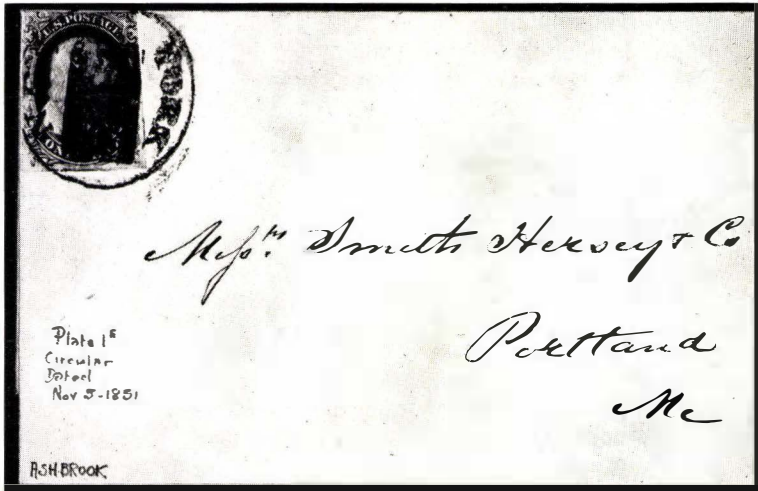 U.S. POSTAGE
YORK
Mess.rs Smith Hersey & Co
Portland
Me
Plate 1E
Circular
Dated
Nov 5-1851
ASHBROOK